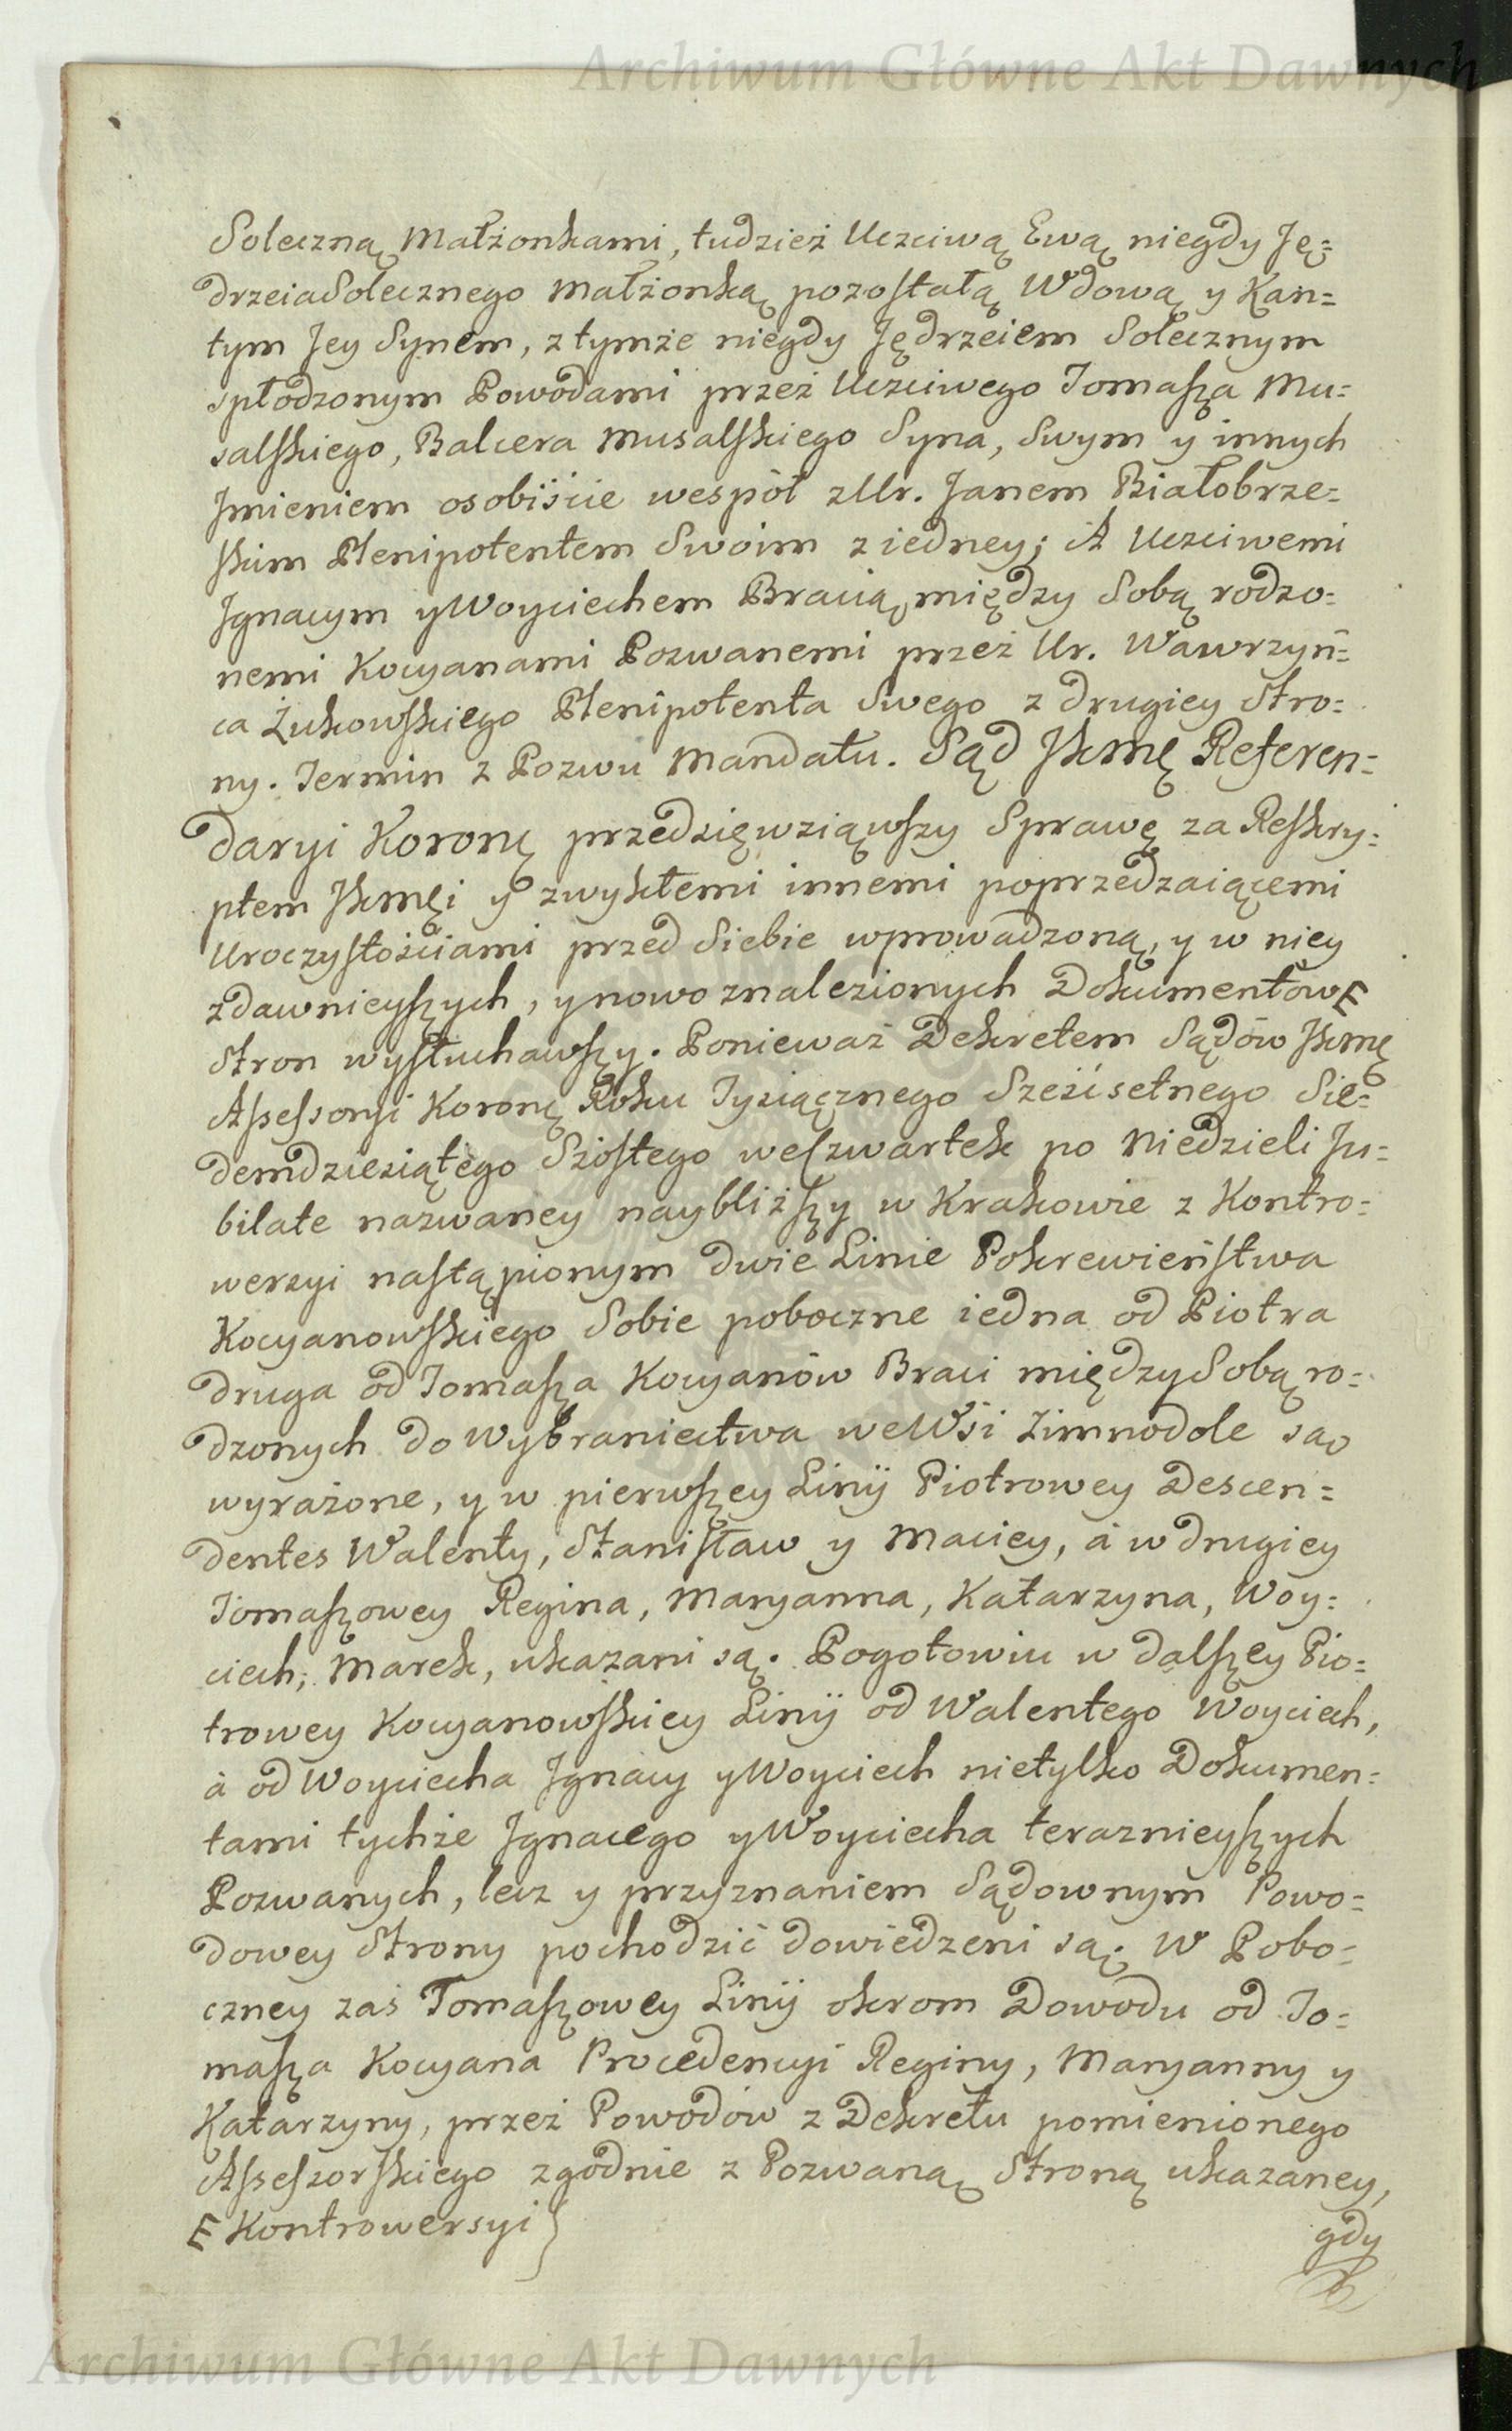 Archiwum Główne Akt Dawnych
Soleczną Małżonkami, tudzież Uczciwą Ewą niegdy Ję=
drzeia Solecznego Małżonką pozostałą Wdową y Kan=
tym Jey Synem, z tymże niegdy Jędrzeiem Solecznym
spłodzonym Powodami przez Uczciwego Tomasza Mu=
salskiego, Balcera Musalskiego Syna, Swym y innych
Jmieniem osobiście wespół z Ur. Janem Białobrze=
skim Plenipotentem Swoim z iedney; A Uczciwemi
Jgnacym y Woyciechem Bracią między Sobą rodzo=
nemi Kocyanami Pozwanemi przez Ur. Wawrzyń=
ca Żukowskiego Plenipotenta Swego z drugiey Stro=
ny. Termin z Pozwu Mandatu. Sąd JKMę Referen=
daryi Koronę przedsięwziąwszy Sprawę za Reskry=
ptem JKMęi y zwykłemi innemi poprzedzaiącemi
Uroczystościami przed Siebie wprowadzoną, y w niey
z dawnieyszych, y nowo znalezionych Dokumentów E
Stron wysłuchawszy. Ponieważ Dekretem Sądów JKMę
Assessoryi Koronę Roku Tysiącznego Sześćsetnego Sie=
demdziesiątego Szóstego we Czwartek po Niedzieli Ju=
bilate nazwaney naybliższy w Krakowie z Kontro=
wersyi nastąpionym dwie Linie Pokrewieństwa
Kocyanowskiego Sobie poboczne iedna od Piotra
druga od Tomasza Kocyanów Braci między Sobą ro=
dzonych do Wybraniectwa we Wsi Zimnodole są
wyrażone, y w pierwszey Linij Piotrowey Descen=
dentes Walenty, Stanisław y Maciey, á w drugiey
Tomaszowey Regina, Maryanna, Katarzyna, Woy=
ciech, Marek, ukazani są. Pogotowiu w dalszey Pio=
trowey Kocyanowskiey Linij od Walentego Woyciech,
á od Woyciecha Jgnacy y Woyciech nietylko Dokumen=
tami tychże Jgnacego y Woyciecha teraznieyszych
Pozwanych, lecz y przyznaniem Sądownym Powo=
dowey Strony pochodzić dowiedzeni są. W Pobo=
czney zaś Tomaszowey Linij okrom Dowodu od To=
masza Kocyana Procedencyi Reginy, Maryanny y
Katarzyny, przez Powodów z Dekretu pomienionego
Assessorskiego zgodnie z Pozwaną Stroną ukazaney,
E Kontrowersyi}
gdy
Archiwum Główne Akt Dawnych